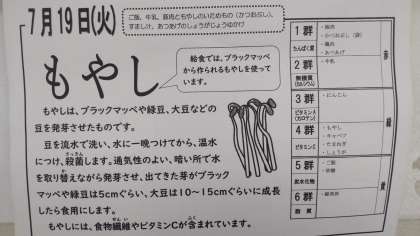 7月19日(火)
ご飯、牛乳、豚肉ともやしのいためもの(かつおぶし)、
すまし汁、あつあげのしょうがじょうゆかけ
もやし
給食では、ブラックマッペ
から作られるもやしを使って
います。
もやしは、ブラックマッペや緑豆、大豆などの
豆を発芽させたものです。
豆を流水で洗い、水に一晩つけてから、温水
につけ、殺菌します。通気性のよい、暗い所で水
を取り替えながら発芽させ、出てきた芽がブラック
マッペや緑豆は5cmぐらい、大豆は10~15cmぐらいに成長
したら食用にします。
もやしには、食物繊維やビタミンCが含まれています。
1群
たんぱく質
・豚肉
・かつおぶし(粉)
・あつあげ
2群
無機質
(カルシウム)
・牛乳
3群
ビタミンA
(カロテン)
・にんじん
4群
ビタミンC
・もやし
・キャベツ
・たまねぎ
・しょうが
5群
炭水化物
・ご飯
・砂糖
6群
脂質
赤
緑
黄